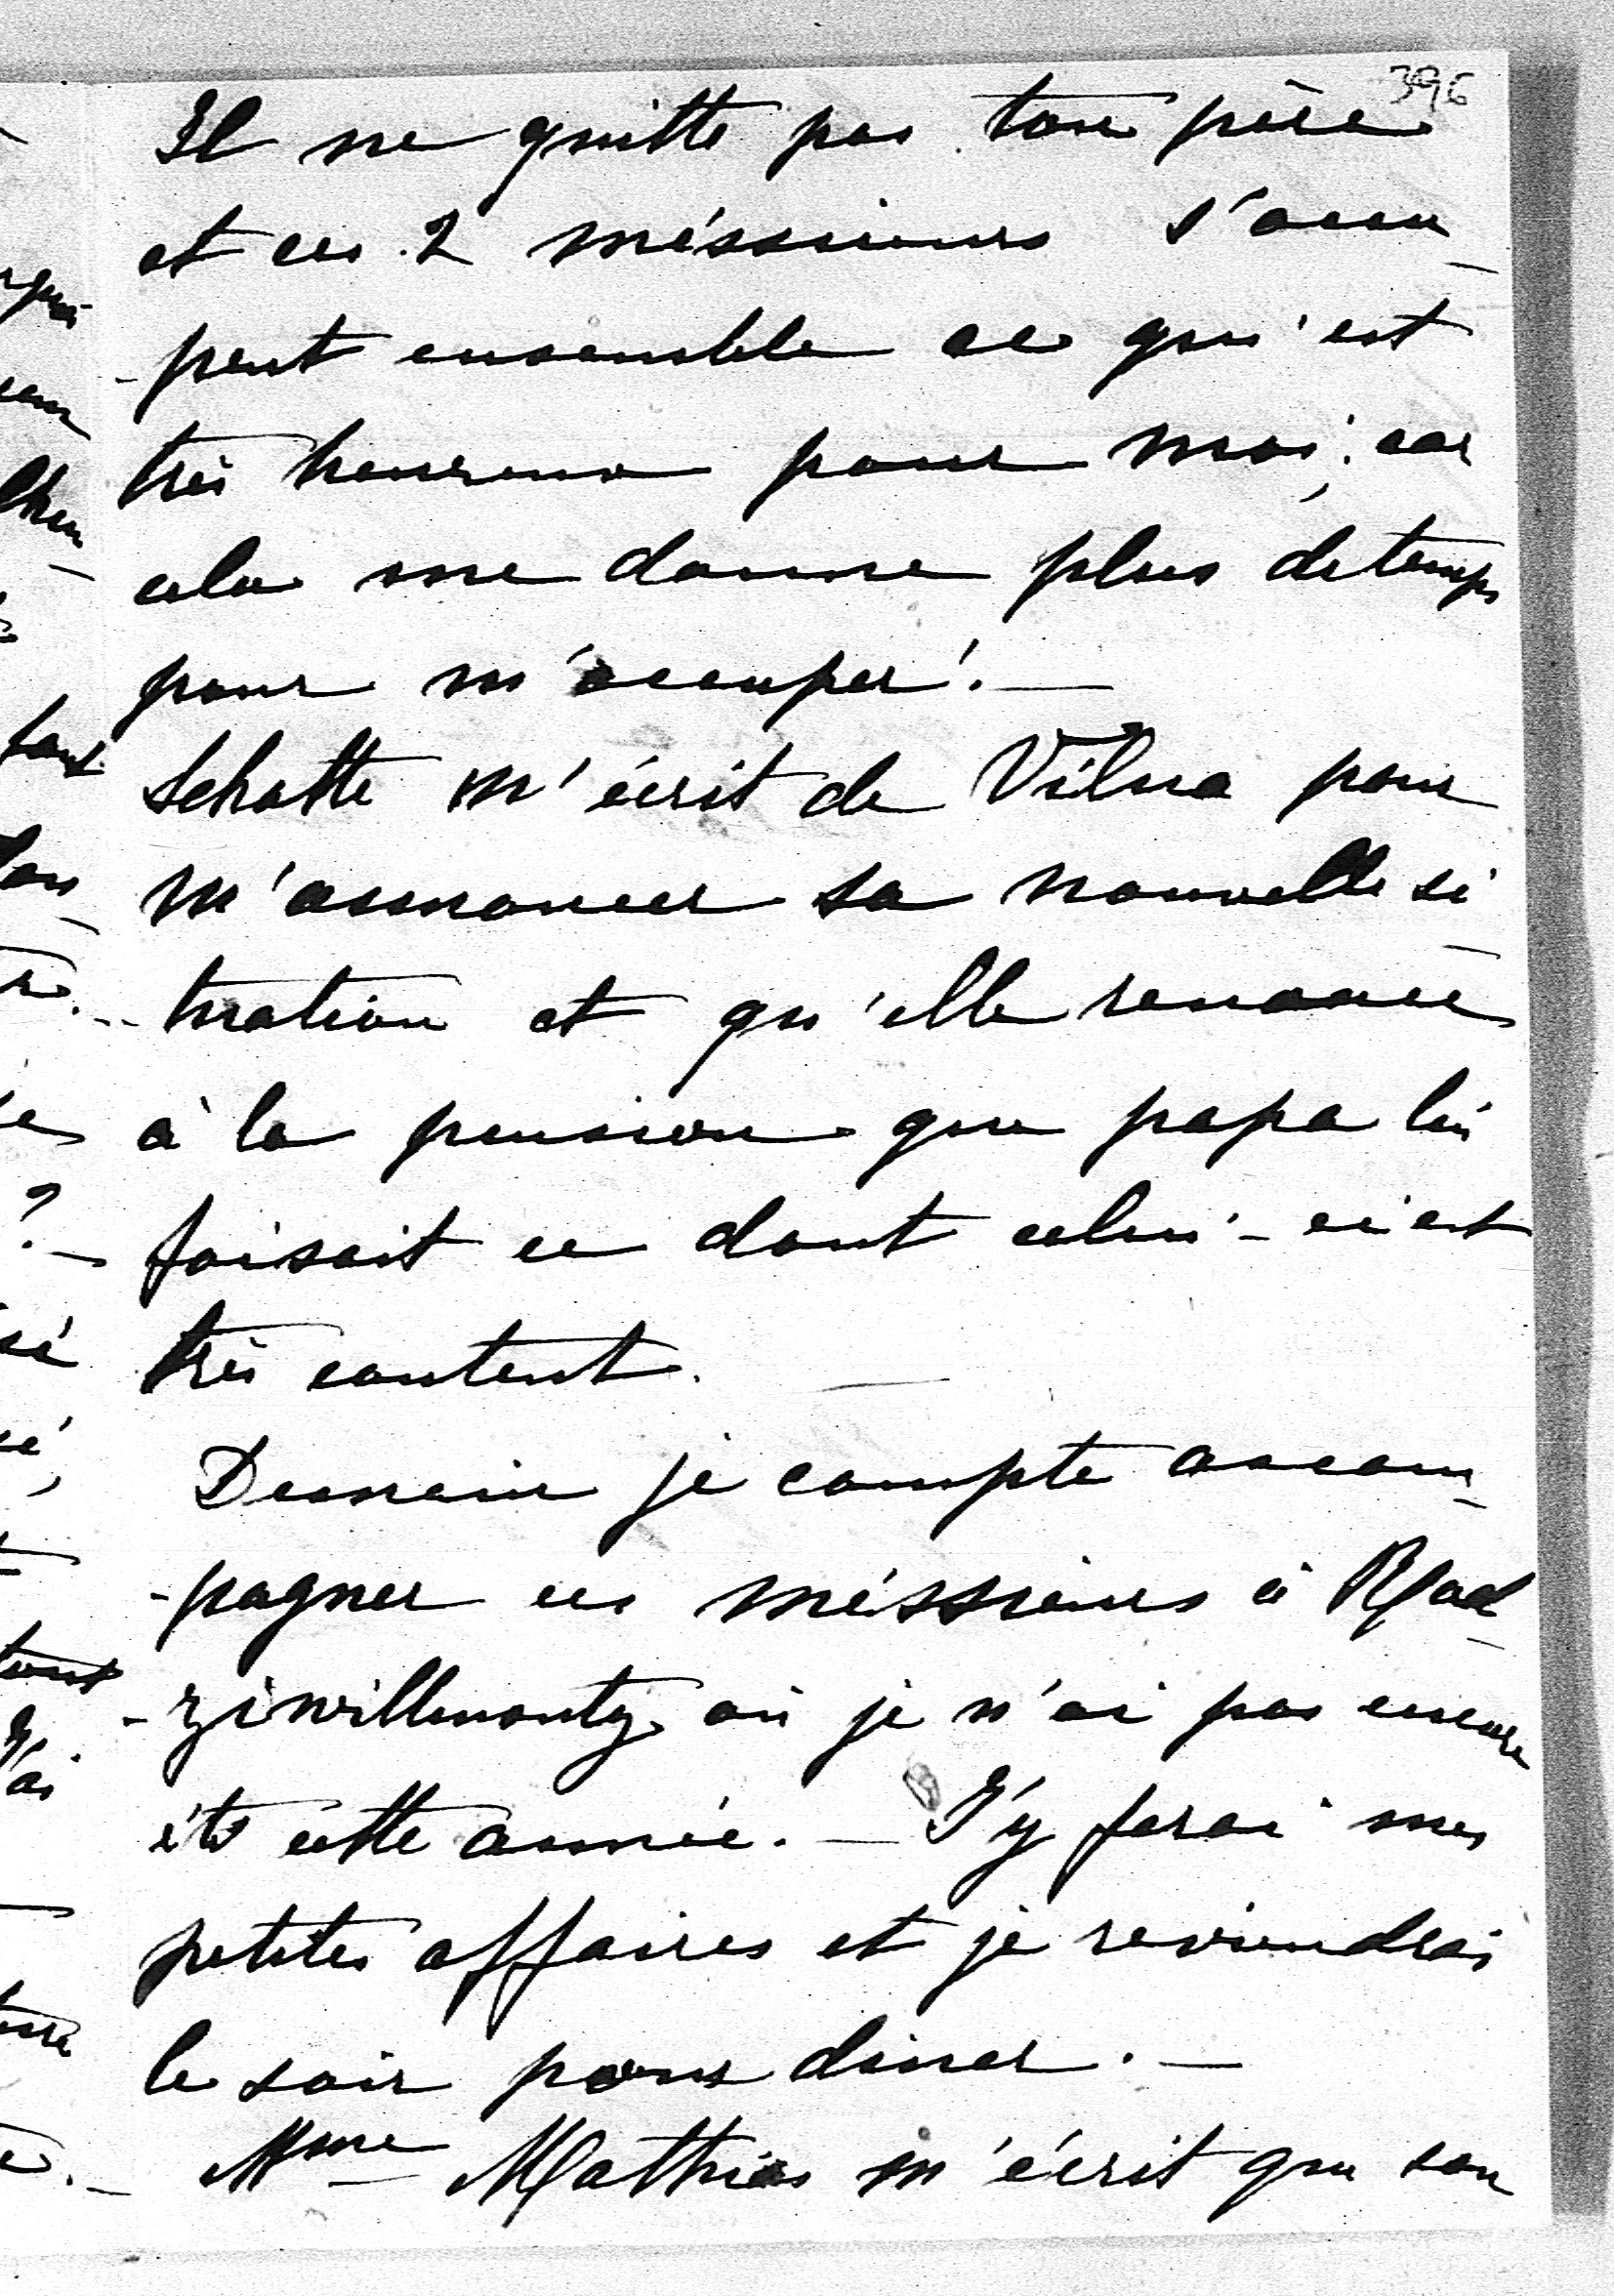 396
Il ne quitte pas ton père
et ces 2 méssieurs s'occu-
-pent ensemble ce qui'est
très heureux pour moi, car
cela me donne plus de temps
pour m'occuper! —
Schotte m'écrit de Vilna pour
m'annoncer sa nouvelle si-
-tuation et qu'elle renonce
à la pension que papa lui
faisait ce dont celui-ci est
très content. —
Demain je compte accom-
-pagner ces méssieurs à Rad-
-ziwillmonty où je n'ai pas encore
été cette année. — J'y ferai mes
petites affaires et je reviendrai
le soir pour diner. —
Mme Mathias m'écrit que son